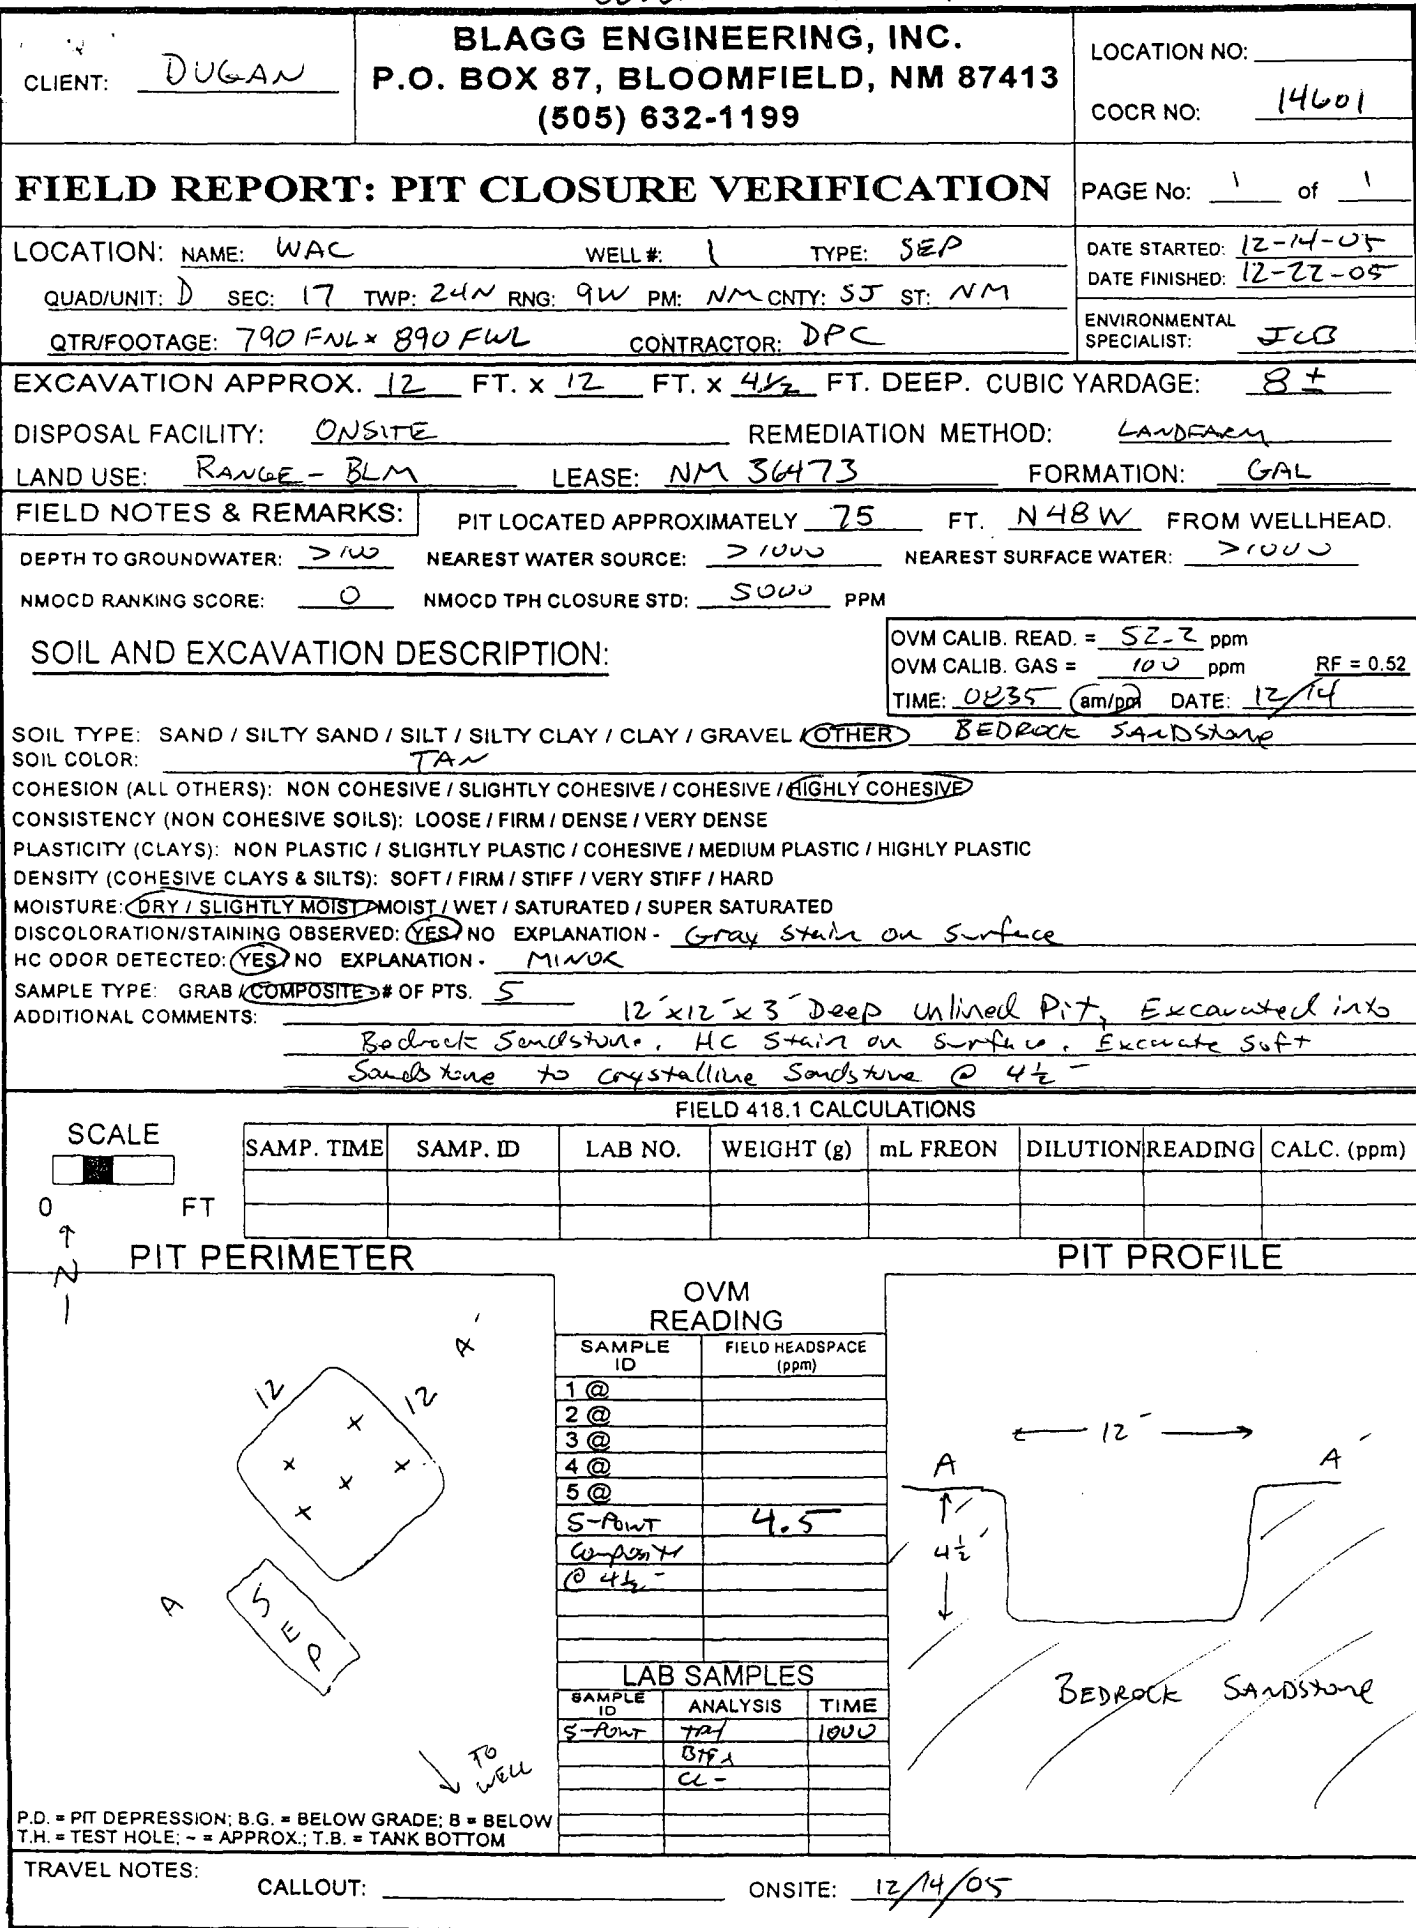 BLAGG ENGINEERING, INC.
CLIENT: DUGAN
P.O. BOX 87, BLOOMFIELD, NM 87413
(505) 632-1199
LOCATION NO:
COCR NO: 14601
FIELD REPORT: PIT CLOSURE VERIFICATION
PAGE No: 1 of 1
LOCATION: NAME: WAC WELL #: 1 TYPE: SEP
DATE STARTED: 12-14-05
DATE FINISHED: 12-22-05
QUAD/UNIT: D SEC: 17 TWP: 24N RNG: 9W PM: NM CNTY: SJ ST: NM
QTR/FOOTAGE: 790 FNL x 890 FWL CONTRACTOR: DPC
ENVIRONMENTAL
SPECIALIST: JCB
EXCAVATION APPROX. 12 FT. x 12 FT. x 4½ FT. DEEP. CUBIC YARDAGE: 8 ±
DISPOSAL FACILITY: ONSITE REMEDIATION METHOD: LANDFARM
LAND USE: RANGE - BLM LEASE: NM 36473 FORMATION: GAL
FIELD NOTES & REMARKS: PIT LOCATED APPROXIMATELY 75 FT. N48W FROM WELLHEAD.
DEPTH TO GROUNDWATER: >100 NEAREST WATER SOURCE: >1000 NEAREST SURFACE WATER: >1000
NMOCD RANKING SCORE: 0 NMOCD TPH CLOSURE STD: 5000 PPM
SOIL AND EXCAVATION DESCRIPTION:
OVM CALIB. READ. = 52.2 ppm
OVM CALIB. GAS = 100 ppm RF = 0.52
TIME: 0835 am/pm DATE: 12/14
SOIL TYPE: SAND / SILTY SAND / SILT / SILTY CLAY / CLAY / GRAVEL / OTHER BEDROCK SANDStone
SOIL COLOR: TAN
COHESION (ALL OTHERS): NON COHESIVE / SLIGHTLY COHESIVE / COHESIVE / HIGHLY COHESIVE
CONSISTENCY (NON COHESIVE SOILS): LOOSE / FIRM / DENSE / VERY DENSE
PLASTICITY (CLAYS): NON PLASTIC / SLIGHTLY PLASTIC / COHESIVE / MEDIUM PLASTIC / HIGHLY PLASTIC
DENSITY (COHESIVE CLAYS & SILTS): SOFT / FIRM / STIFF / VERY STIFF / HARD
MOISTURE: DRY / SLIGHTLY MOIST / MOIST / WET / SATURATED / SUPER SATURATED
DISCOLORATION/STAINING OBSERVED: YES / NO EXPLANATION - Gray Stain on Surface
HC ODOR DETECTED: YES / NO EXPLANATION - MINOR
SAMPLE TYPE: GRAB / COMPOSITE - # OF PTS. 5
ADDITIONAL COMMENTS: 12' x 12' x 3' Deep Unlined Pit, Excavated into
Bedrock Sandstone. HC Stain on Surface. Excavate Soft
Sandstone to crystalline Sandstone @ 4½'
FIELD 418.1 CALCULATIONS
SCALE
0 FT
SAMP. TIME SAMP. ID LAB NO. WEIGHT (g) mL FREON DILUTION READING CALC. (ppm)
N
PIT PERIMETER
PIT PROFILE
OVM
READING
SAMPLE ID FIELD HEADSPACE (ppm)
1 @
2 @
3 @
4 @
5 @
5-Point 4.5
Composite
@ 4½'
LAB SAMPLES
SAMPLE ID ANALYSIS TIME
5-Point TPH 1000
BTEX
CL-
A'
12
12
A
SEP
TO
WELL
12'
A
A'
4½'
BEDROCK SANDStone
P.D. = PIT DEPRESSION; B.G. = BELOW GRADE; B = BELOW
T.H. = TEST HOLE; ~ = APPROX.; T.B. = TANK BOTTOM
TRAVEL NOTES:
CALLOUT: ONSITE: 12/14/05